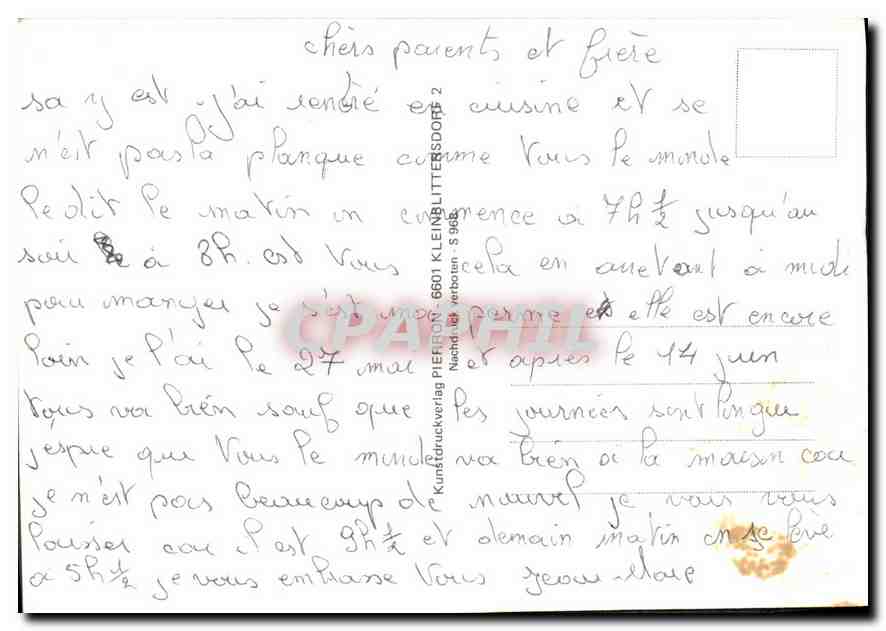 chèrs parents et frère
sa y est j'ai rentré en cuisine et se
n'est pas la planque comme tous le monde
le dit le matin on commence à 7h 1/2 jusqu'au
soir à 8h. est tous cela en arretant à midi
pour manger je s'est ma perme elle est encore
loin je l'ai le 27 mai et après le 14 juin
tous va bien sauf que les journées sont longue
j'espre que tous le monde va bien à la maison car
je n'est pas beaucoup de nouvel je vais vous
laisser car il est 9h 1/2 et demain matin on se lève
à 5h 1/2 je vous embrasse tous Jean-Marc
Kunstdruckverlag PIERRON - 6601 KLEINBLITTERSDORF 2
Nachdruck verboten - S 968
CPAPHIL